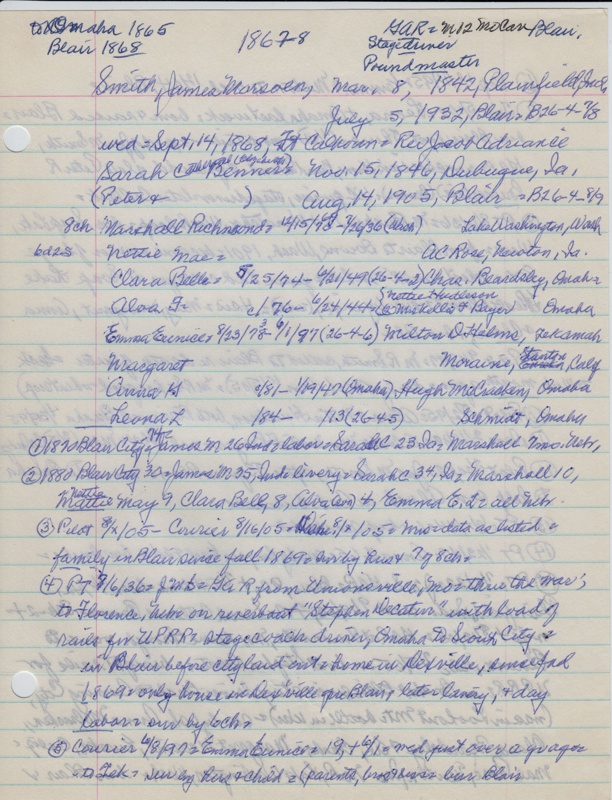 to Omaha 1865
Blair 1868
1867-8
GAR = M12 McCav Blair,
Stagedriver
Poundmaster
Smith, James Monroe, Mar. 8, 1842, Plainfield, Ind.
July 5, 1932, Blair = B26-4-7/8
wed = Sept. 14, 1868, Ft Calhoun = Rev Jacob Adriance
Sarah C Benner = Nov. 15, 1846, Dubuque, Ia.
(Peter + ) Aug. 14, 1905, Blair = B26-4-8/9
8ch Marshall Richmond = 12/15/ - 7/26/36 Lake Washington, Wash
6d2s Nettie Mae = AC Rose, Newton, Ia.
Clara Belle = 5/25/74 - 6/21/49 (26-4-2) Chas. Beardsley, Omaha
Alva F. = c/. 76 - 6/24/44 & Bayer Omaha
Emma Eunice = 8/23/78 - 6/1/97 (26-4-6) Milton D Helms, Tekamah
Margaret Moraine, Stanton, Calif
Anna H /81 - 1/09/47 (Omaha), Hugh McCracken, Omaha
Leona L /84 - /13 (26-4-5) Schmidt, Omaha
① 1870 Blair City = James M 26 Ind = labor = Sarah C 23 Ia = Marshall 7mo. Nebr,
② 1880 Blair City 30 = James M 35, Ind = livery = Sarah C 34, Ia = Marshall 10,
Nettie
Mattie May 9, Clara Bell, 8, Alva 4, Emma E, 2 = all Nebr.
③ Pilot 8/ /05 - Courier 8/16/05 = 8/ /05 = mrs = data as listed =
family in Blair since fall 1869 = sur by hus + 7 of 8ch =
④ PT 7/6/36 = JMS = GAR from Unionsville, Mo = thru the war;
to Florence, Nebr on riverboat "Stephen Decatur" with load of
rails for UPRR = stage coach driver, Omaha to Sioux City =
in Blair before city laid out = home in DeSville, since fall
1869 = only house in DeSville for Blair, later livery, + day
labor = sur by 6ch =
⑤ Courier 6/8/97 = Emma Eunice = 19, + 6/1 = md just over a yr ago =
to Tek = sur by hus + child = (parents, bros + sis = bur Blair